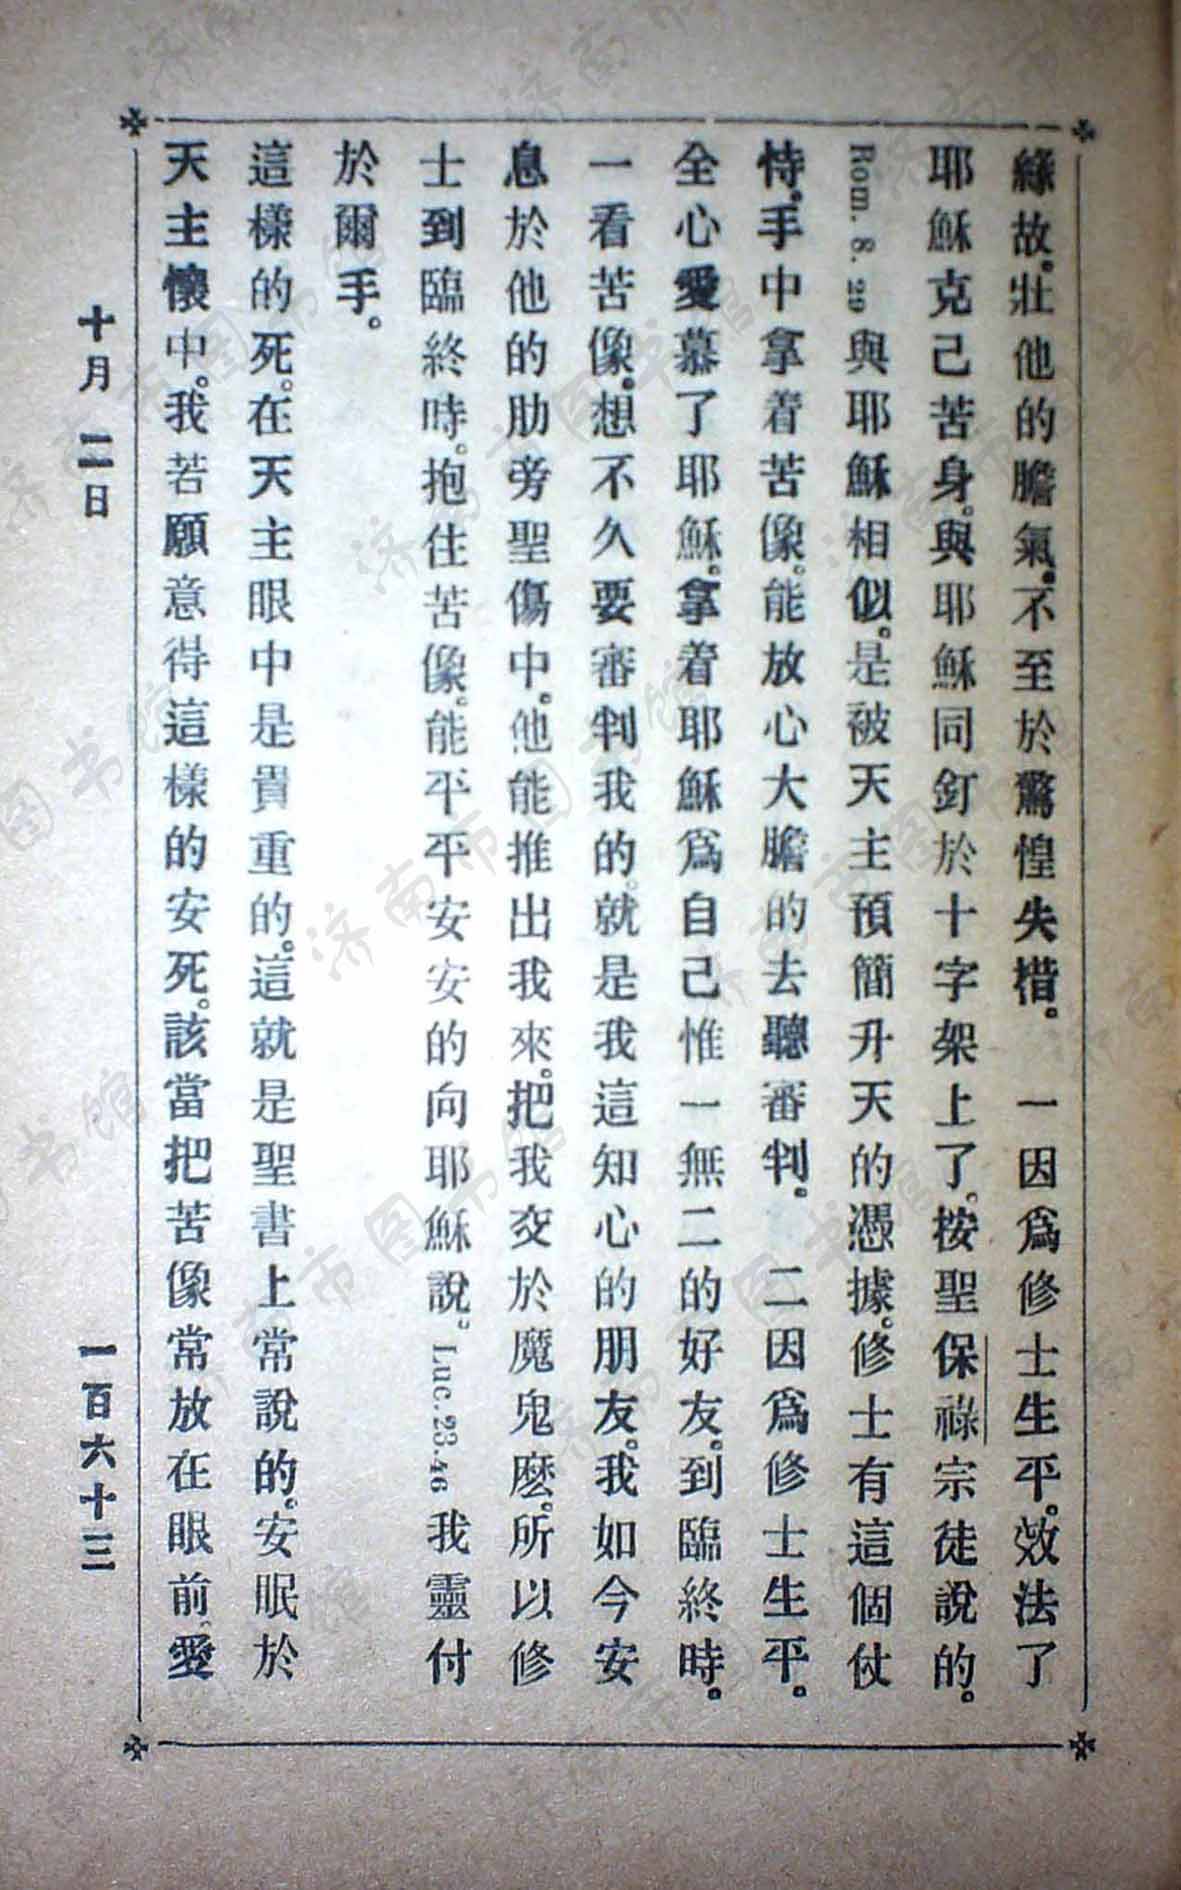 緣故。壯他的膽氣。不至於驚惶失措。　一因爲修士生平。效法了
耶穌克己苦身。與耶穌同釘於十字架上了。按聖保祿宗徒說的。
Rom. 8. 29 與耶穌相似。是被天主預簡升天的憑據。修士有這個仗
恃。手中拿着苦像。能放心大膽的去聽審判。　二因爲修士生平。
全心愛慕了耶穌。拿着耶穌爲自己惟一無二的好友。到臨終時。
一看苦像。想不久要審判我的。就是我這知心的朋友。我如今安
息於他的肋旁聖傷中。他能推出我來。把我交於魔鬼麽。所以修
士到臨終時。抱住苦像。能平平安安的向耶穌說。Luc. 23. 46 我靈付
於爾手。
這樣的死。在天主眼中是貴重的。這就是聖書上常說的。安眠於
天主懷中。我若願意得這樣的安死。該當把苦像常放在眼前、愛
十月 二日　一百六十三
济南市图书馆